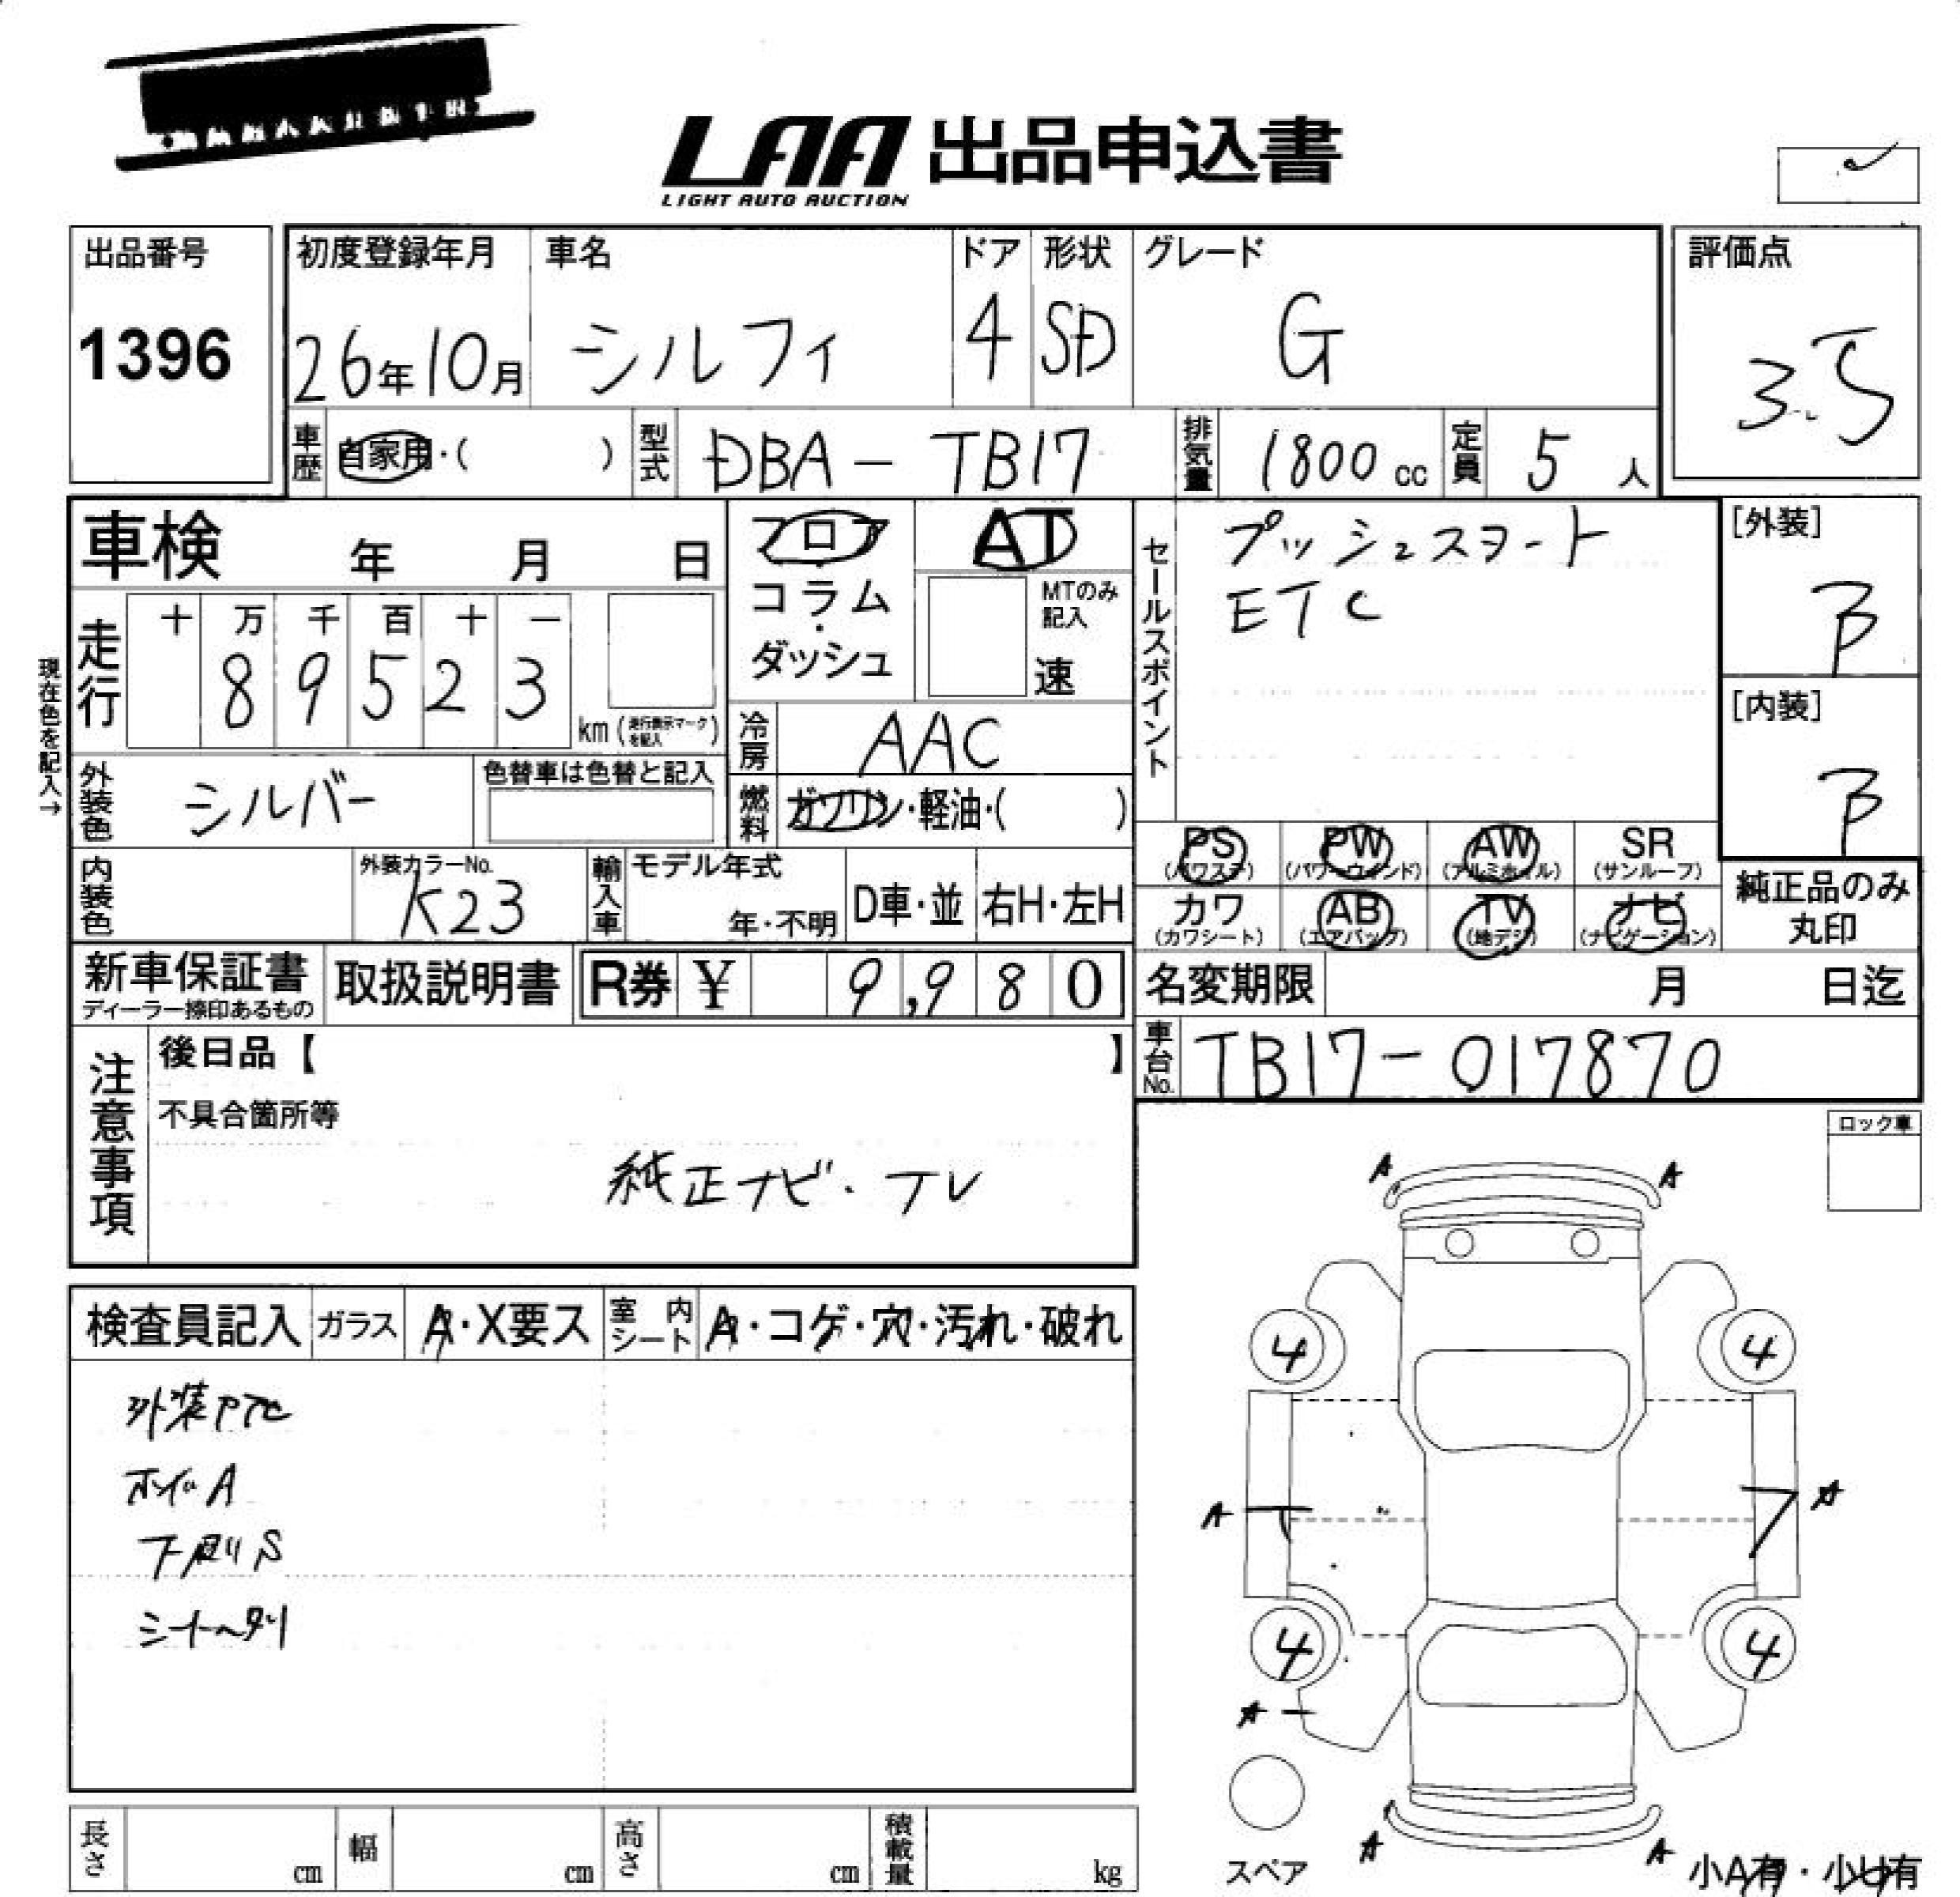 LAA 出品申込書
LIGHT AUTO AUCTION
出品番号
1396
初度登録年月
26年10月
車名
シルフィ
ドア
4
形状
SD
グレード
G
評価点
3.5
車歴
自家用・( )
型式
DBA-TB17
排気量
1800 cc
定員
5人
車検 年 月 日
フロア
コラム・
ダッシュ
AT
MTのみ記入
速
セールスポイント
プッシュスタート
ETC
[外装]
B
[内装]
B
現在色を記入→
走行
十 万 千 百 十 一
8 9 5 2 3
km (走行表示マークを記入)
冷房
AAC
外装色
シルバー
色替車は色替と記入
燃料
ガソリン・軽油・( )
PS (パワステ)
PW (パワーウインド)
AW (アルミホイル)
SR (サンルーフ)
カワ (カワシート)
AB (エアバッグ)
TV (地デジ)
ナビ (ナビゲーション)
純正品のみ
丸印
内装色
外装カラーNo.
K23
輸入車
モデル年式
年・不明
D車・並
右H・左H
新車保証書
ディーラー捺印あるもの
取扱説明書
R券 ¥ 9,980
名変期限 月 日迄
車台No.
TB17-017870
注意事項
後日品【 】
不具合箇所等
純正ナビ・テレ
ロック車
検査員記入
ガラス
A・X要ス
室内シート
A・コゲ・穴・汚れ・破れ
ホイルA
下廻りS
A A
4 4
A A
4 4
A
A A
スペア
小A有・小U有
長さ cm
幅 cm
高さ cm
積載量 kg